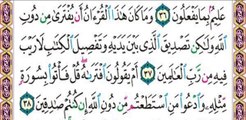 عَلِيمٌۢ بِمَا يَفْعَلُونَ ٣٦ وَمَا كَانَ هَٰذَا ٱلْقُرْءَانُ أَن يُفْتَرَىٰ مِن دُونِ
ٱللَّهِ وَلَٰكِن تَصْدِيقَ ٱلَّذِى بَيْنَ يَدَيْهِ وَتَفْصِيلَ ٱلْكِتَٰبِ لَا رَيْبَ
فِيهِ مِن رَّبِّ ٱلْعَٰلَمِينَ ٣٧ أَمْ يَقُولُونَ ٱفْتَرَىٰهُ ۖ قُلْ فَأْتُوا۟ بِسُورَةٍ
مِّثْلِهِۦ وَٱدْعُوا۟ مَنِ ٱسْتَطَعْتُم مِّن دُونِ ٱللَّهِ إِن كُنتُمْ صَٰدِقِينَ ٣٨